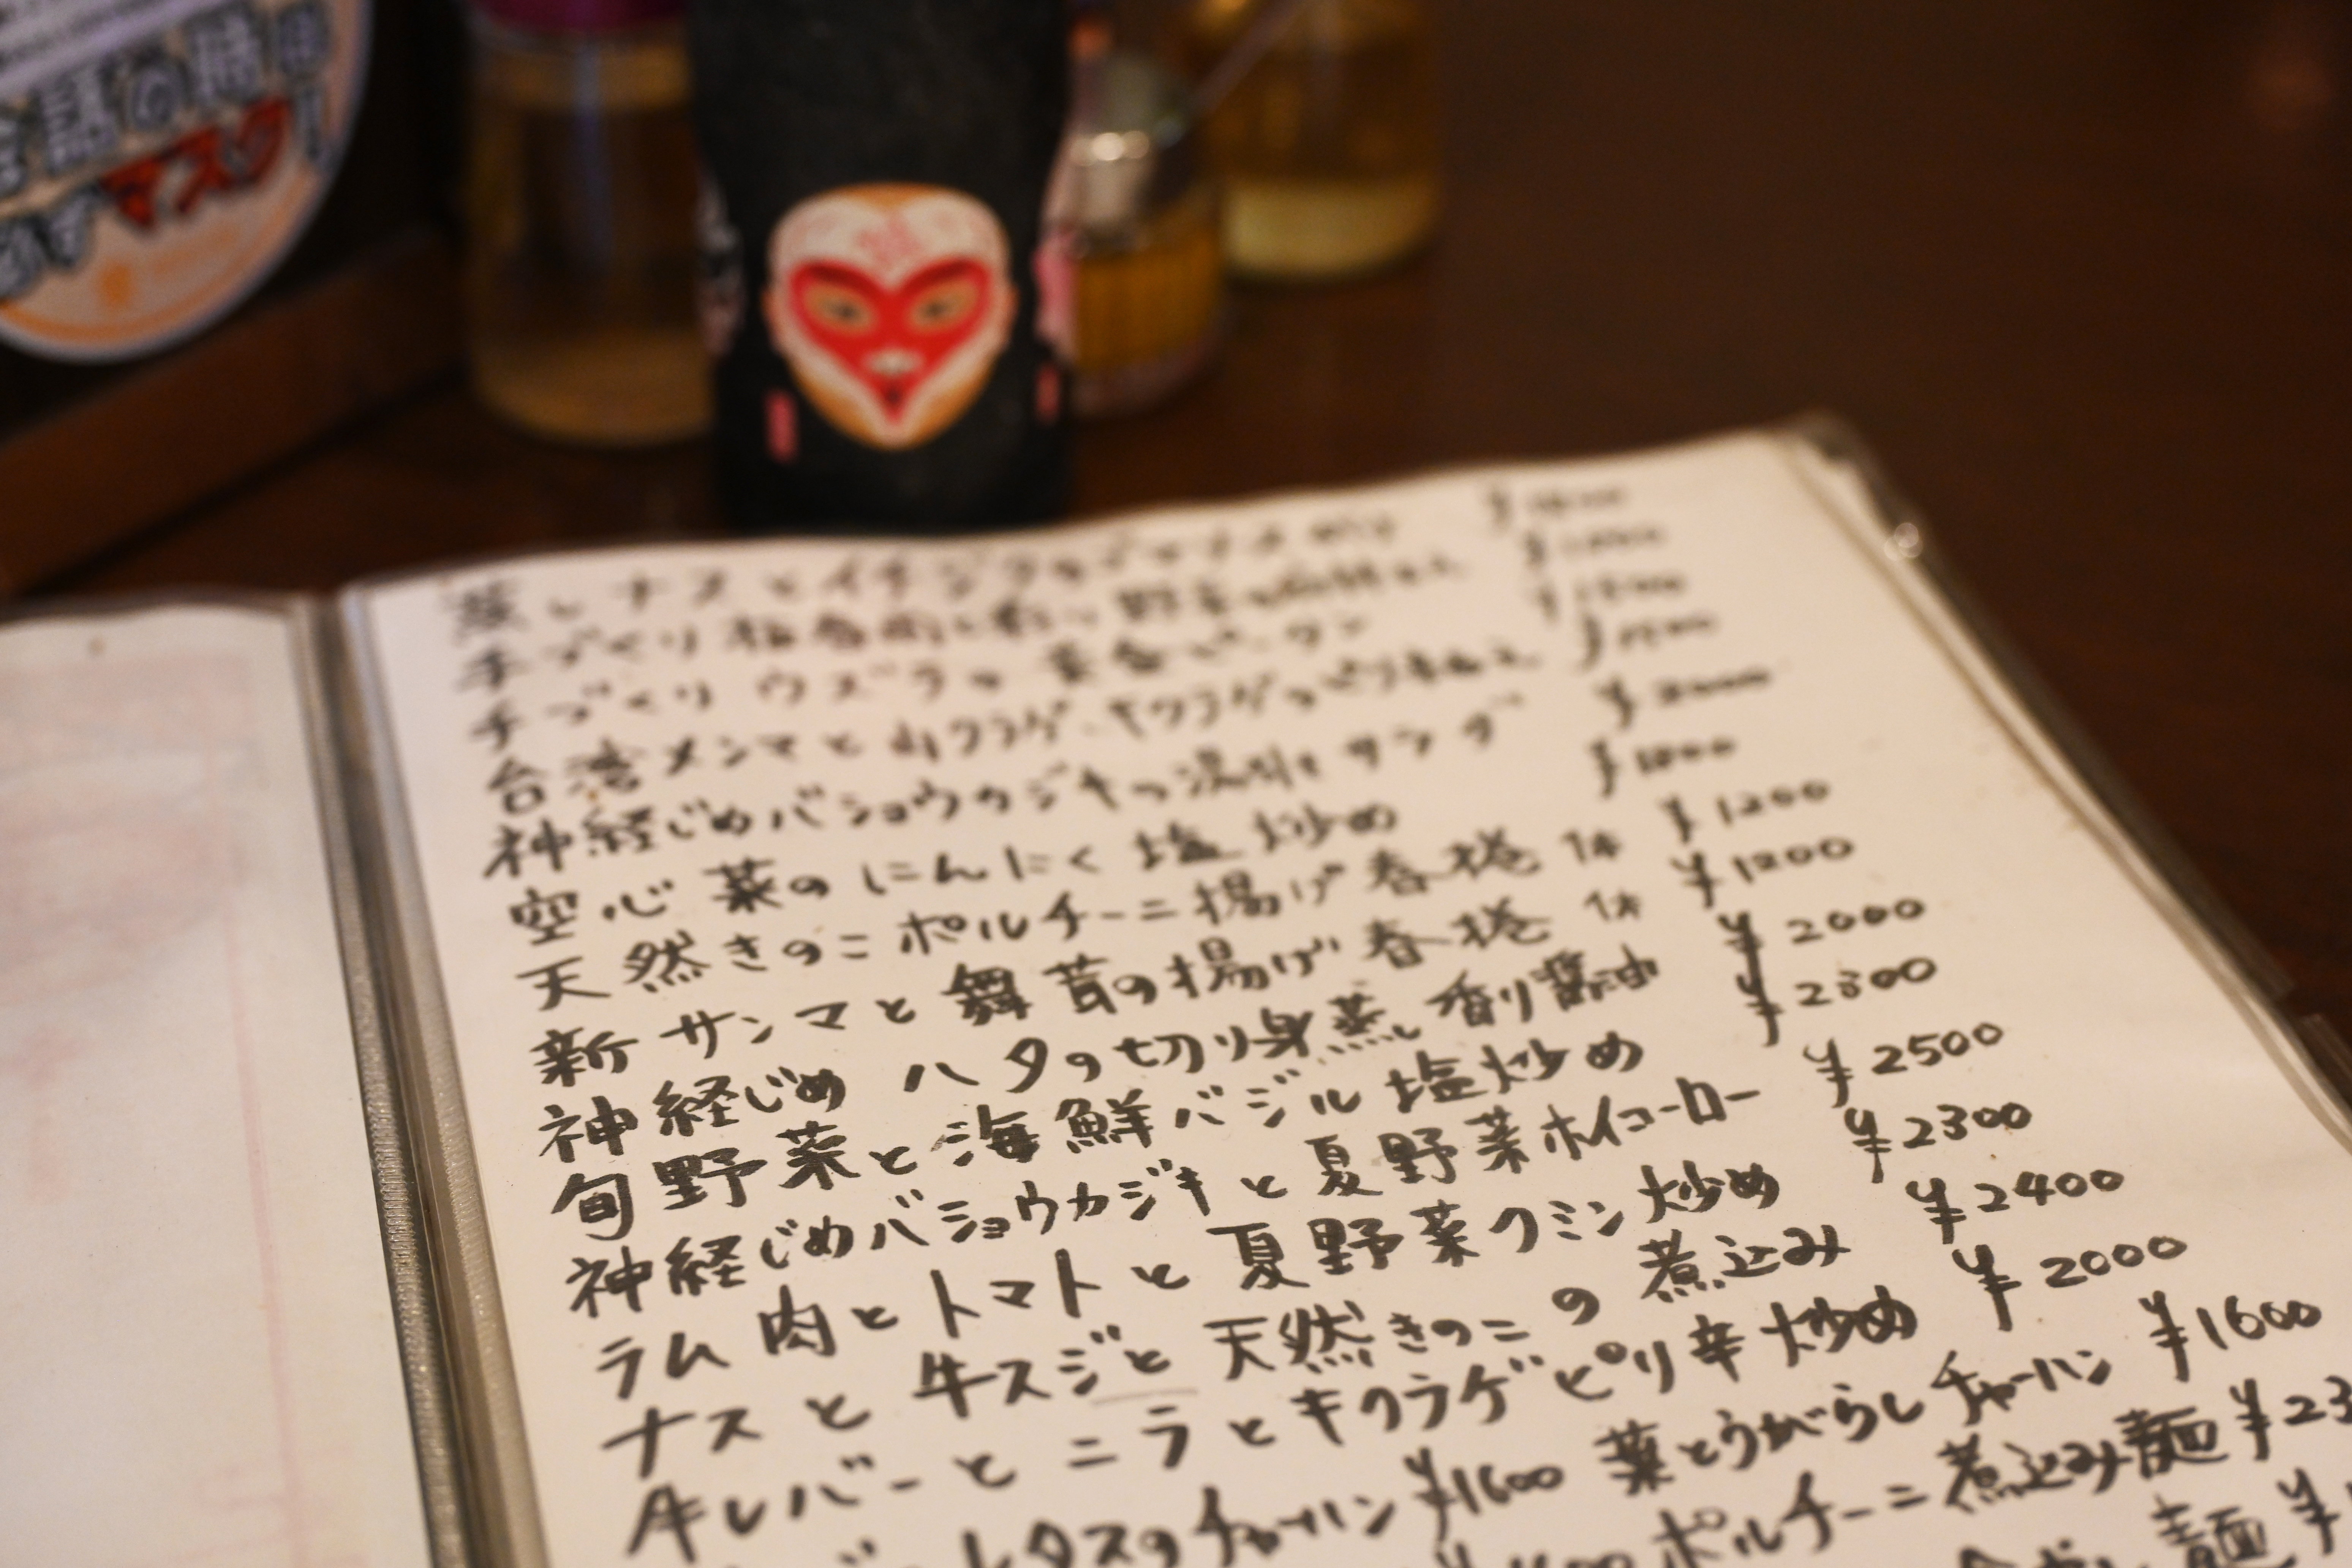 話の時は
必ずマスク!
蒸しナスとイチジクの
手づくり
手づくりウズラの黄金ピータン
台湾メンマと山クラゲ、キクラゲのピリ辛和え
神経じめバショウカジキの湯引きサラダ ¥2000
空心菜のにんにく塩炒め ¥1800
天然きのこポルチーニ揚げ春捲 1本 ¥1200
新サンマと舞茸の揚げ春捲 1本 ¥1200
神経じめ ハタの切り身蒸し 香り醤油 ¥2000
旬野菜と海鮮バジル塩炒め ¥2300
神経じめバショウカジキと夏野菜ホイコーロー ¥2500
ラム肉とトマトと夏野菜クミン炒め ¥2300
ナスと牛スジと天然きのこの煮込み ¥2400
牛レバーとニラとキクラゲピリ辛炒め ¥2000
レタスのチャーハン ¥1600 葉とうがらしチャーハン ¥1600
ポルチーニ煮込み麺 ¥23
麺 ¥